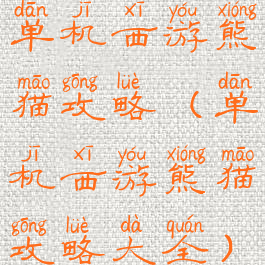 dān jī xī yóu xióng
单机西游熊
māo gōng lüè dān
猫攻略（单
jī xī yóu xióng māo
机西游熊猫
gōng lüè dà quán
攻略大全）